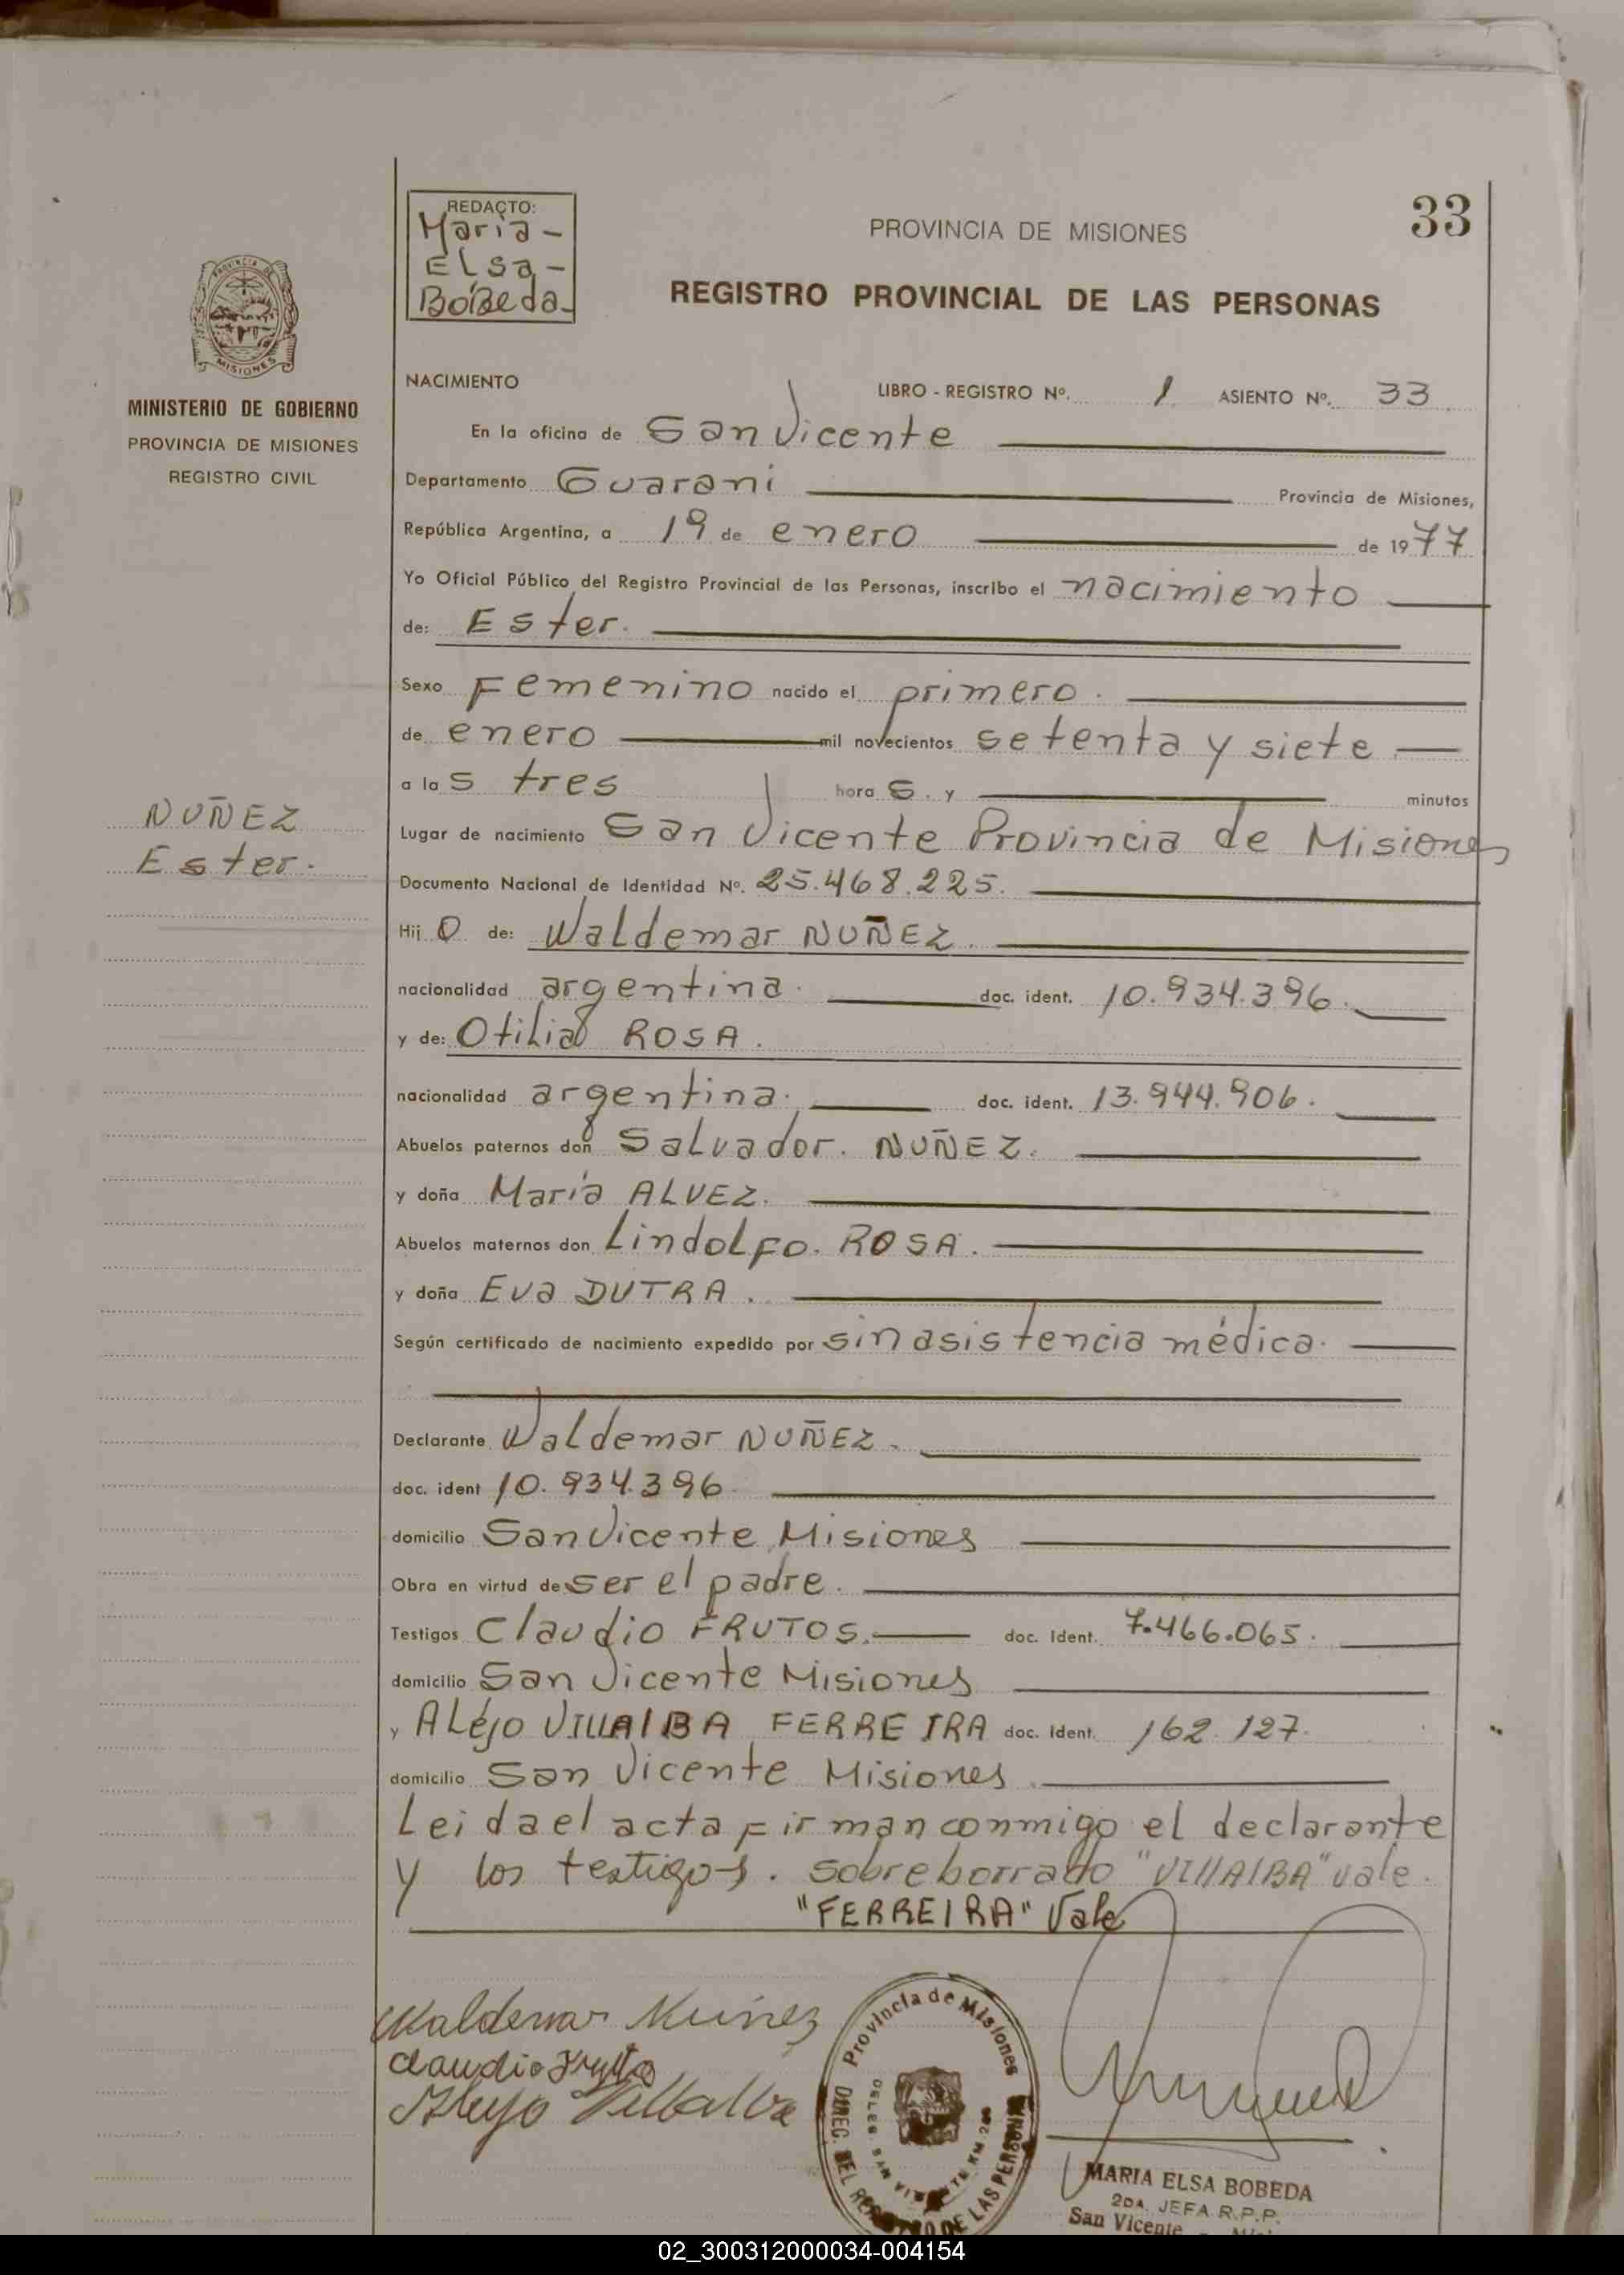 33
REDACTO:
Maria -
Elsa -
Bobeda -
PROVINCIA DE MISIONES
REGISTRO PROVINCIAL DE LAS PERSONAS
PROVINCIA DE
MISIONES
MINISTERIO DE GOBIERNO
PROVINCIA DE MISIONES
REGISTRO CIVIL
NACIMIENTO LIBRO - REGISTRO Nº. 1 ASIENTO Nº. 33
En la oficina de San Vicente
Departamento Guarani Provincia de Misiones,
República Argentina, a 19 de enero de 1977
Yo Oficial Público del Registro Provincial de las Personas, inscribo el nacimiento
de: Ester.
Sexo Femenino nacido el primero.
de enero mil novecientos setenta y siete
a las tres horas. y minutos
NUÑEZ
Ester.
Lugar de nacimiento San Vicente Provincia de Misiones
Documento Nacional de Identidad Nº. 25.468.225.
Hij O de: Waldemar NUÑEZ.
nacionalidad argentina. doc. ident. 10.934.396.
y de: Otilia ROSA.
nacionalidad argentina. doc. ident. 13.944.906.
Abuelos paternos don Salvador. NUÑEZ.
y doña María ALVEZ.
Abuelos maternos don Lindolfo. ROSA.
y doña Eva DUTRA.
Según certificado de nacimiento expedido por sin asistencia médica.
Declarante Waldemar NUÑEZ.
doc. ident 10.934.396
domicilio San Vicente Misiones
Obra en virtud de ser el padre.
Testigos Claudio FRUTOS. doc. Ident. 7.466.065.
domicilio San Vicente Misiones
y Aléjo VILLALBA FERREIRA doc. Ident. 162.127.
domicilio San Vicente Misiones
Leida el acta firman conmigo el declarante
y los testigos. sobreborrado "VILLALBA" vale.
"FERREIRA" Vale
Waldemar Nuñez
Claudio Frutos
Alejo Villalba
Provincia de Misiones
DIREC. DEL REGISTRO DE LAS PERSONAS
DELEG. SAN VICENTE KM
MARIA ELSA BOBEDA
2DA. JEFA R.P.P.
San Vicente
02_300312000034-004154